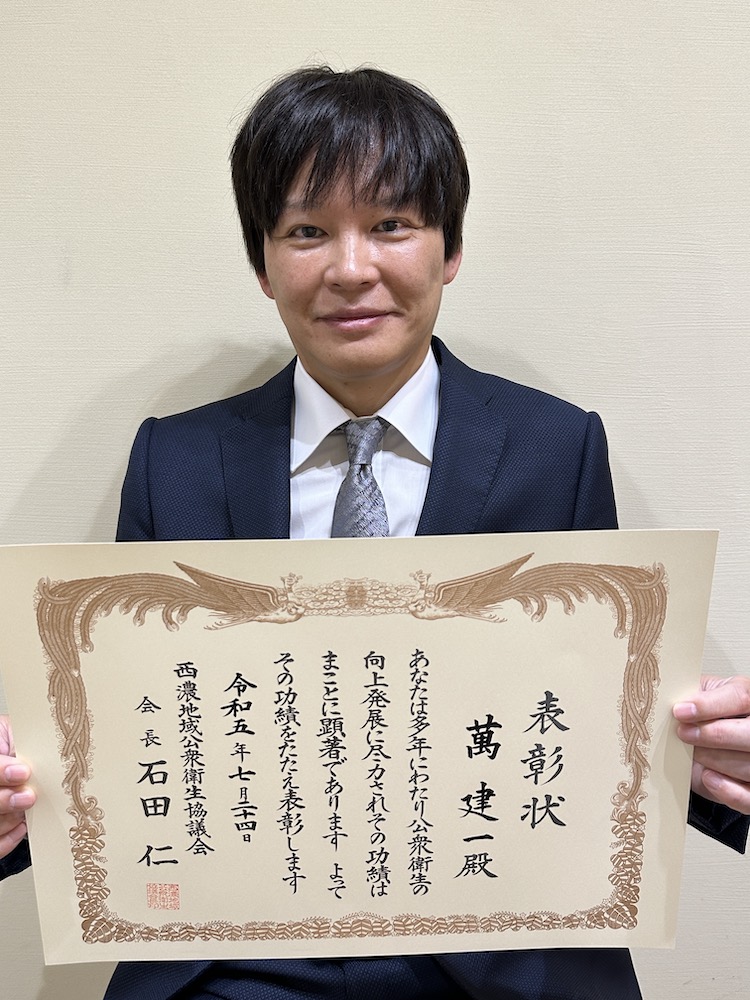 表彰状
萬建一殿
あなたは多年にわたり公衆衛生の
向上発展に尽力されその功績は
まことに顕著であります よって
その功績をたたえ表彰します
令和五年七月二十四日
西濃地域公衆衛生協議会
会長 石田仁